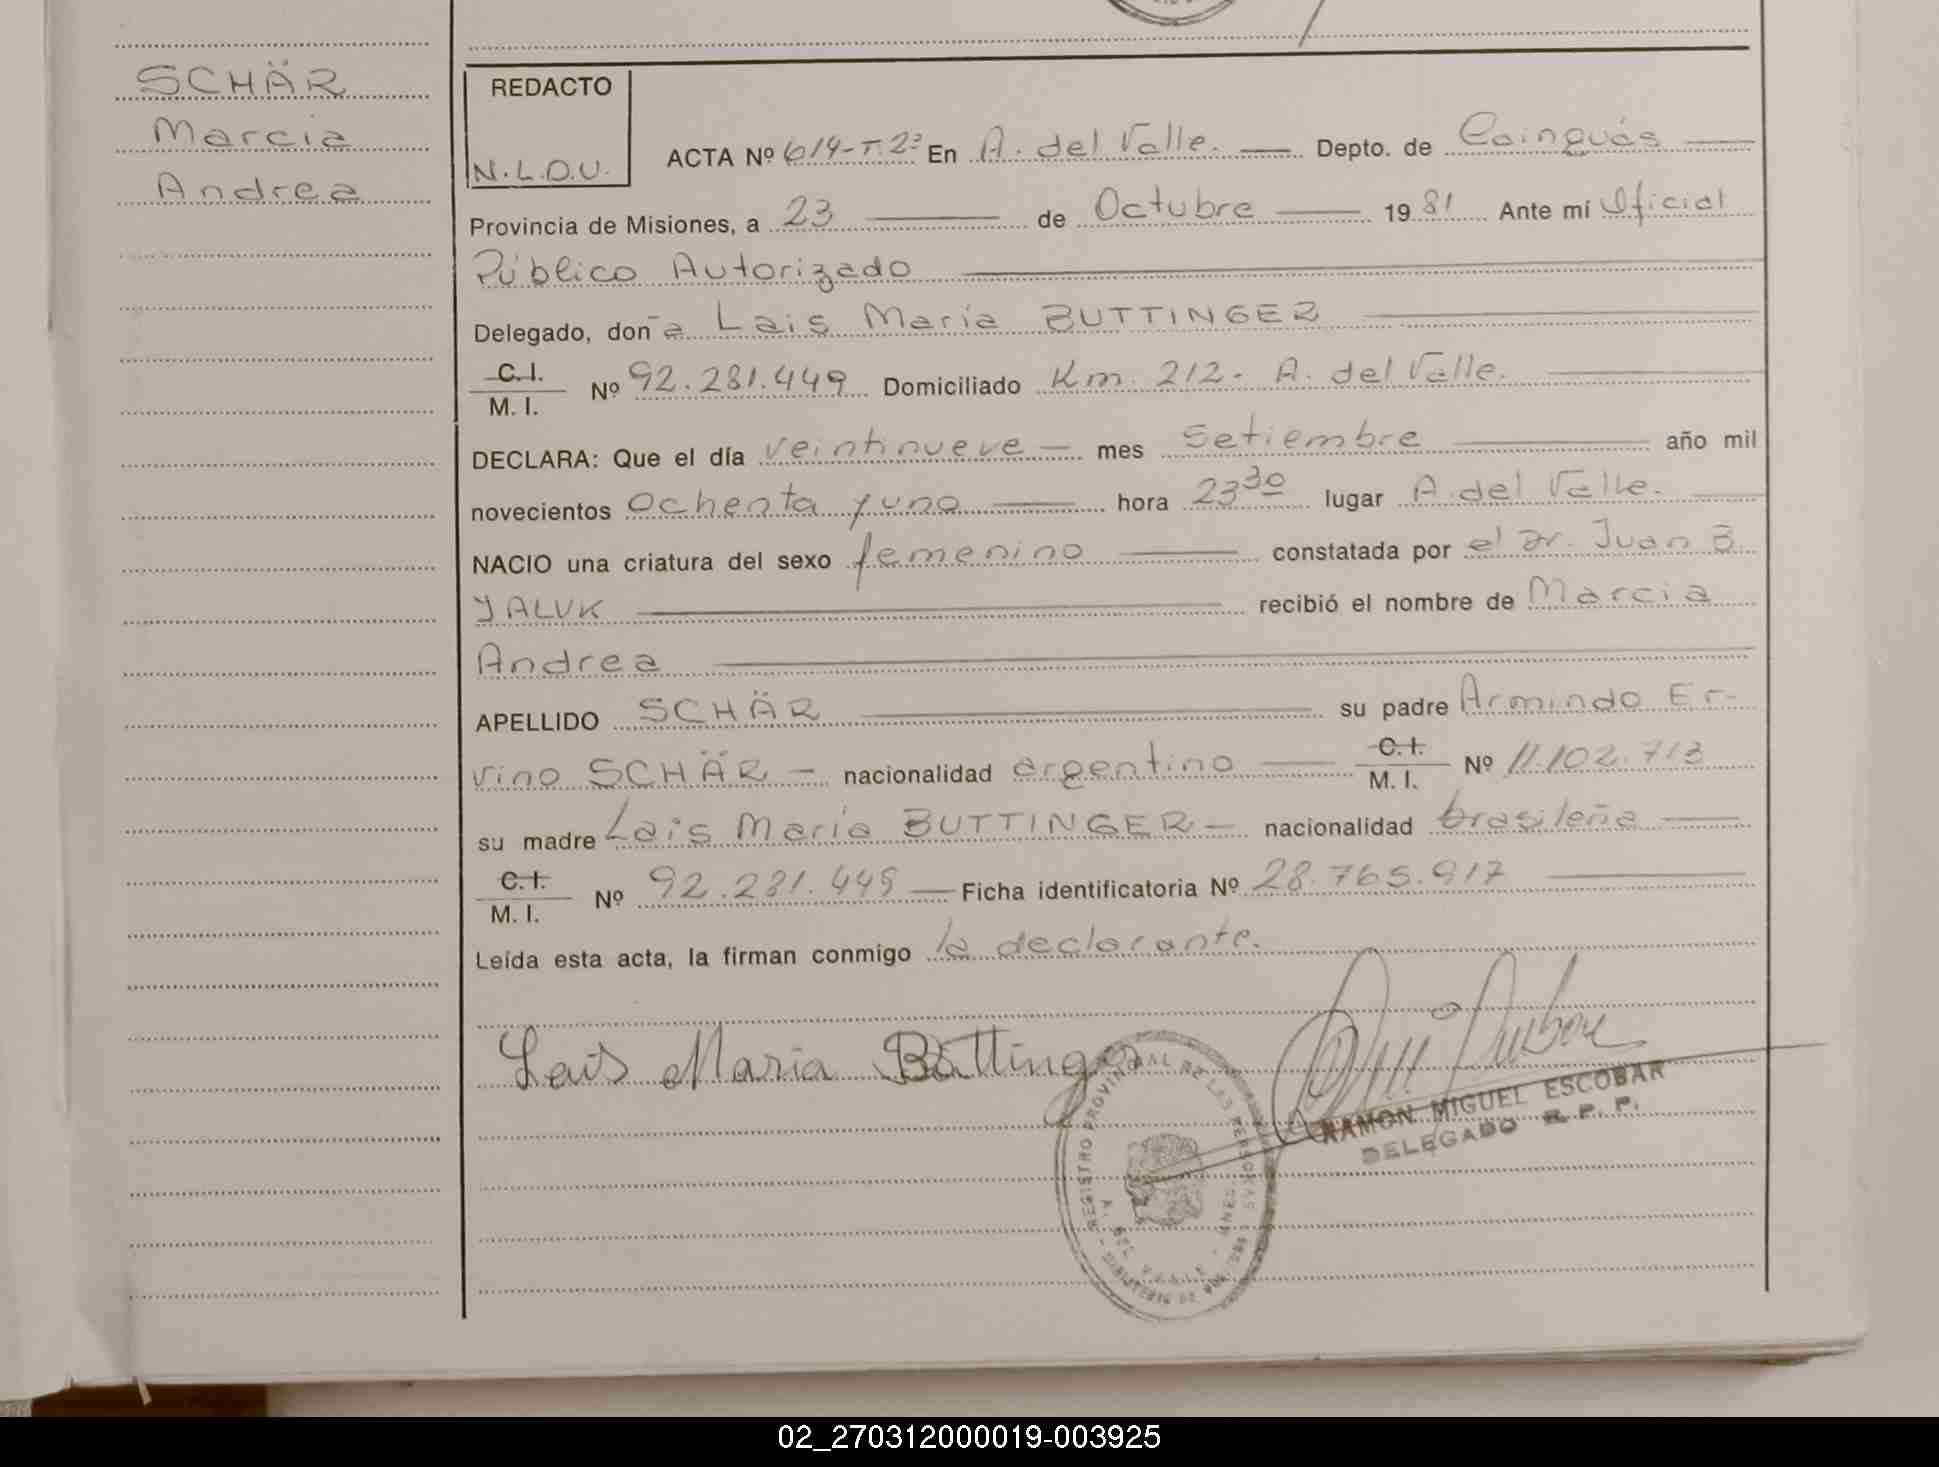 SCHÄR
Marcia
Andrea
REDACTO
N.L.D.U.
ACTA Nº 614-T.2º En A. del Valle. Depto. de Cainguás
Provincia de Misiones, a 23 de Octubre 1981 Ante mí Oficial
Público Autorizado
Delegado, don-a Lais María BUTTINGER
C.I.
M.I. Nº 92.281.449 Domiciliado Km. 212- A. del Valle.
DECLARA: Que el día veintinueve mes Setiembre año mil
novecientos ochenta y uno hora 23 30 lugar A. del Valle.
NACIO una criatura del sexo femenino constatada por el Dr. Juan B
YALUK recibió el nombre de Marcia
Andrea
APELLIDO SCHÄR su padre Armindo Er-
vino SCHÄR - nacionalidad argentino C.I.
M.I. Nº 11.102.713
su madre Lais María BUTTINGER - nacionalidad brasileña
C.I.
M.I. Nº 92.281.449 Ficha identificatoria Nº 28.765.917
Leída esta acta, la firman conmigo la declarante.
Lais Maria Buttinger
REGISTRO PROVINCIAL DE LAS PERSONAS
A. DEL VALLE - MNES.
RAMON MIGUEL ESCOBAR
DELEGADO R. P. P.
02_270312000019-003925